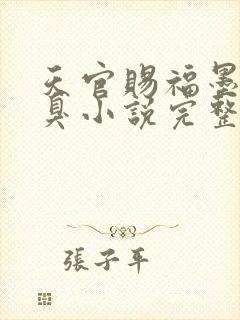 天官賜福墨
臭小說完整
張子平